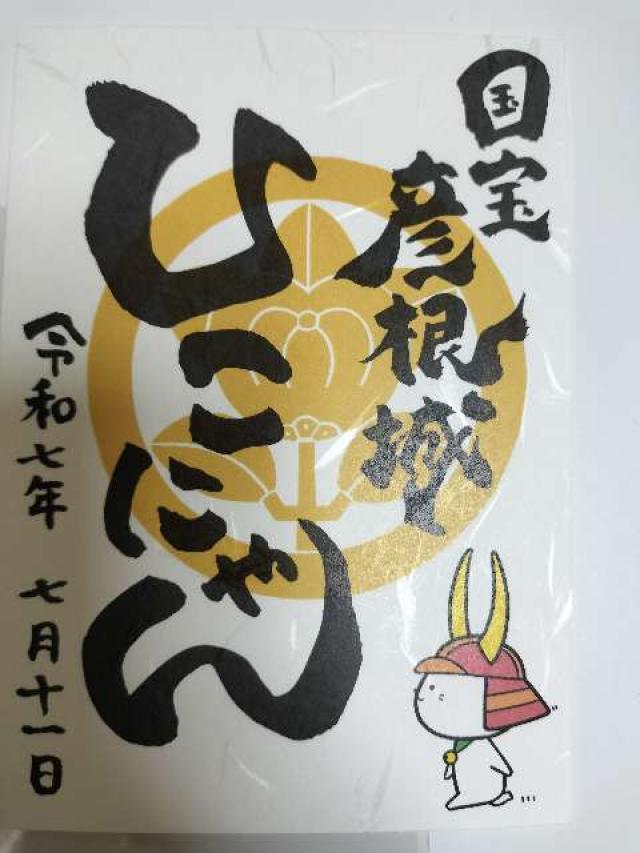 国宝
彦根城
ひこにゃん
令和七年 七月十一日